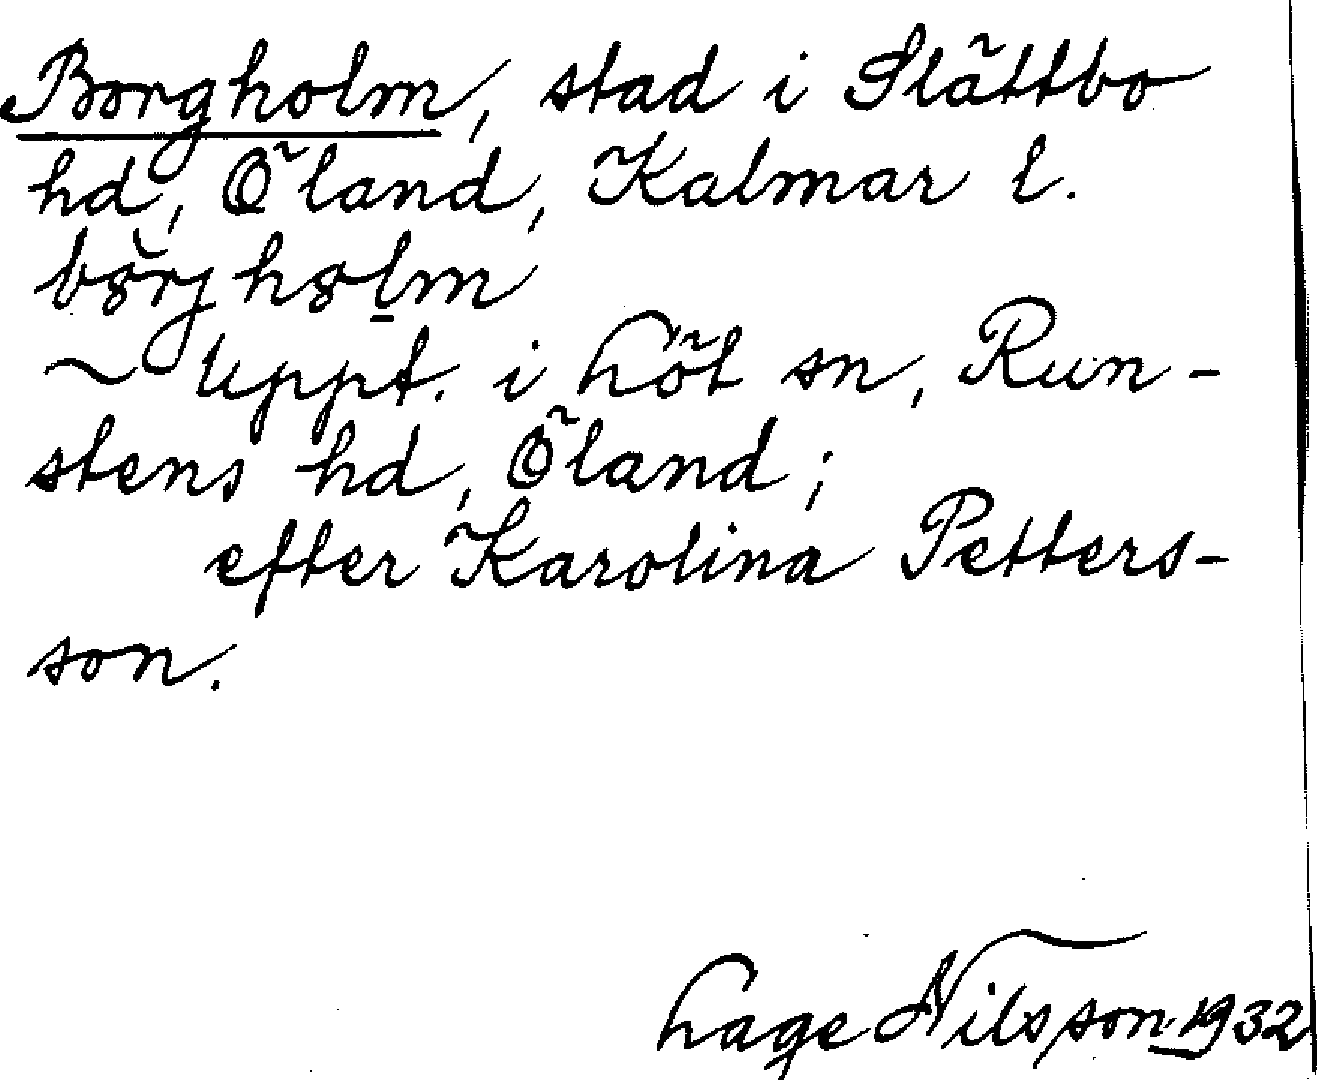 Borgholm, stad i Slättbo
hd, Öland, Kalmar l.
~ Uppt. i Löt sn, Run-
stens hd, Öland;
efter Karolina Petters-
son.
Lage Nilsson 1932